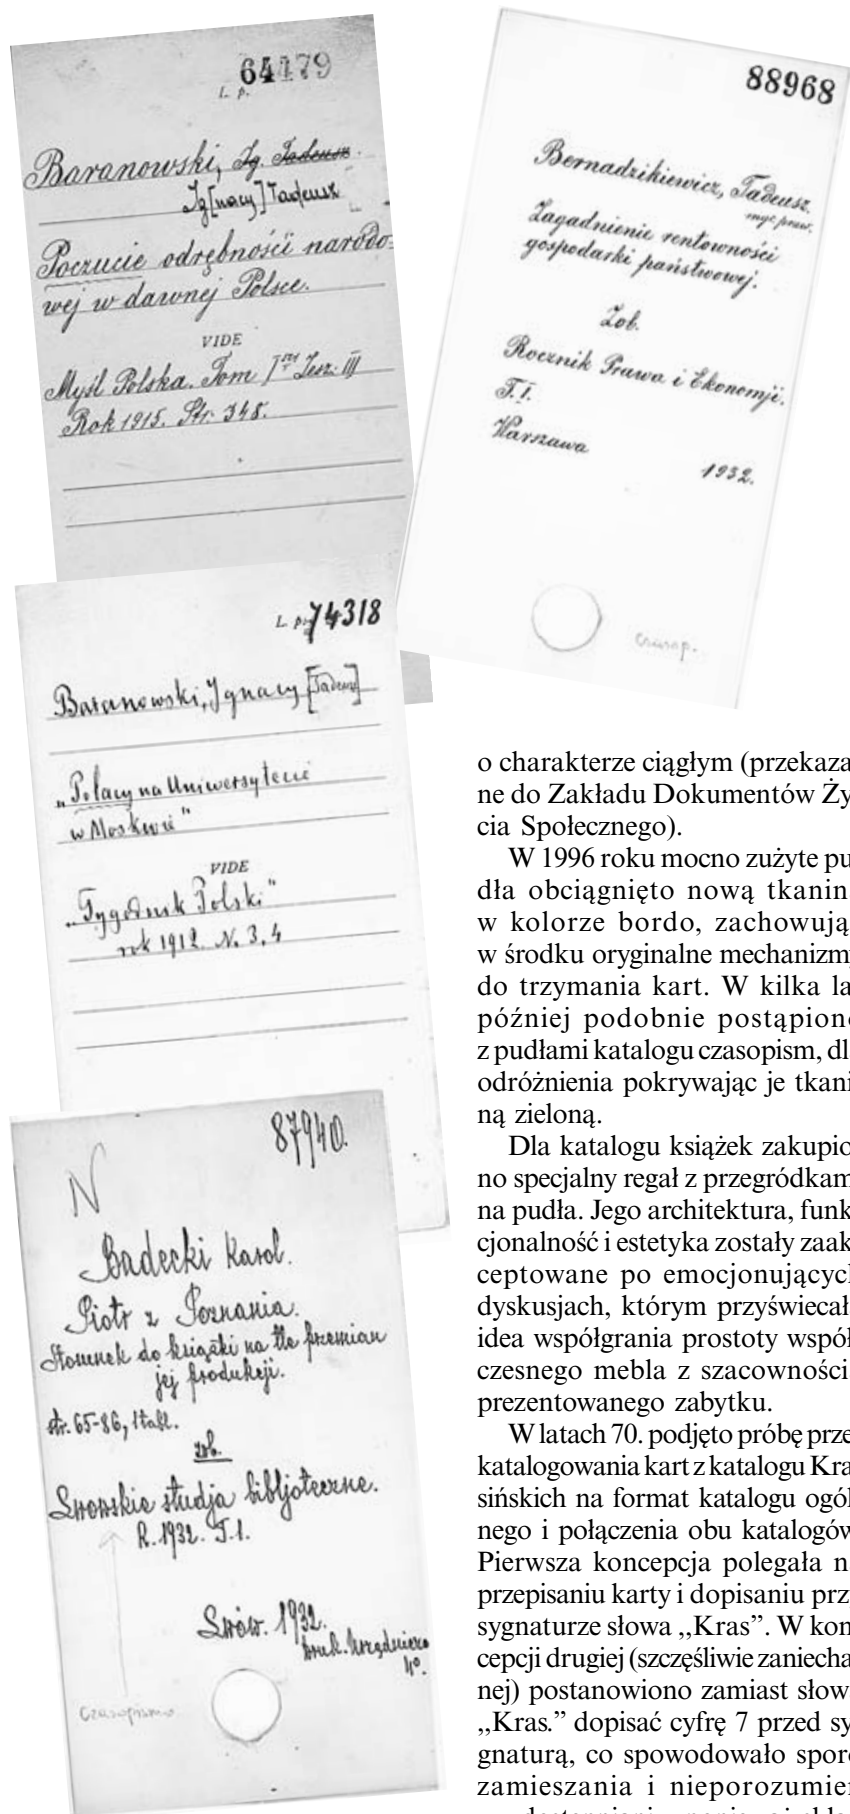 64179
L. p.
Baranowski, Ig. Tadeusz.
Ig[nacy] Tadeusz
Poczucie odrębności narodo=
wej w dawnej Polsce.
VIDE
Myśl Polska. Tom I Zesz. III
Rok 1915. Str. 348.
88968
Bernadzikiewicz, Tadeusz.
Zagadnienie rentowności
gospodarki państwowej.
Zob.
Rocznik Prawa i Ekonomji.
T.I.
Warszawa 1932.
Czasop.
L. p. 74318
Baranowski, Ignacy [Tadeusz]
„Polacy na Uniwersytecie
w Moskwie"
VIDE
„Tygodnik Polski"
rok 1912. N. 3, 4
87940.
N
Badecki Karol.
Piotr z Poznania.
Stosunek do książki na tle przemian
jej produkcji.
str. 65-86, 1 tabl.
zob.
Lwowskie studja bibljoteczne.
R. 1932. T. 1.
Lwów. 1932.
druk. Urzędnicza
4°.
Czasopismo
o charakterze ciągłym (przekaza
ne do Zakładu Dokumentów Ży
cia Społecznego).
W 1996 roku mocno zużyte pu
dła obciągnięto nową tkanin
w kolorze bordo, zachowują
w środku oryginalne mechanizmy
do trzymania kart. W kilka la
później podobnie postąpiono
z pudłami katalogu czasopism, dl
odróżnienia pokrywając je tkani
ną zieloną.
Dla katalogu książek zakupio
no specjalny regał z przegródkam
na pudła. Jego architektura, funk
cjonalność i estetyka zostały zaak
ceptowane po emocjonujących
dyskusjach, którym przyświecał
idea współgrania prostoty współ
czesnego mebla z szacowności
prezentowanego zabytku.
W latach 70. podjęto próbę prze
katalogowania kart z katalogu Kra
sińskich na format katalogu ogól
nego i połączenia obu katalogów
Pierwsza koncepcja polegała n
przepisaniu karty i dopisaniu prz
sygnaturze słowa „Kras”. W kon
cepcji drugiej (szczęśliwie zaniecha
nej) postanowiono zamiast słow
„Kras.” dopisać cyfrę 7 przed sy
gnaturą, co spowodowało sporo
zamieszania i nieporozumień